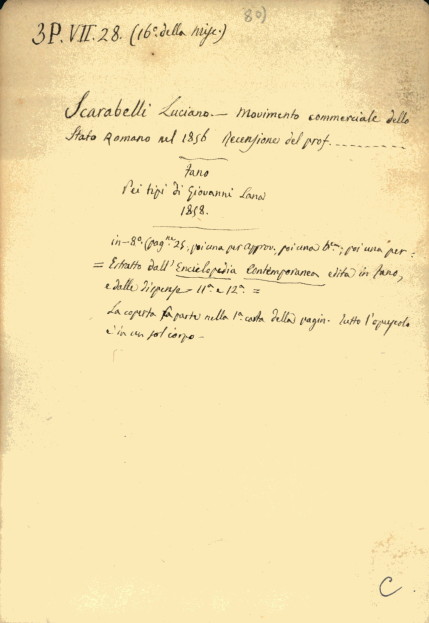 80)
3P. VII. 28. (16ª della Misc.)
Scarabelli Luciano. — Movimento commerciale dello
Stato Romano nel 1856 Recensione del prof. ..........
Fano
Pei tipi di Giovanni Lana
1858.
in-8º (pag.ne 25, poi una per approv., poi una b.ca; poi una per:
= Estratto dall'Enciclopedia Contemporanea edita in Fano,
e dalle dispense 11ª e 12ª =
La coperta fa parte nella 1ª carta della pagin. Tutto l'opuscolo
è in un sol corpo —
C